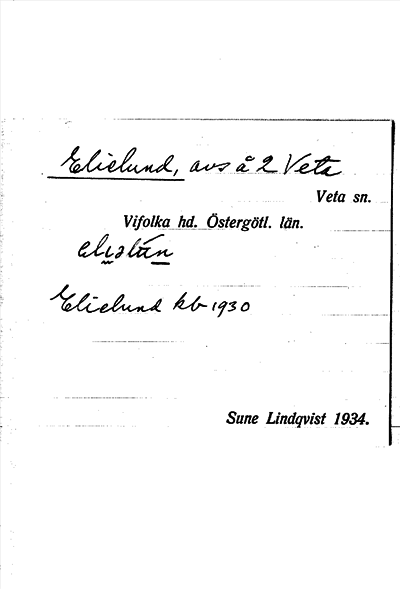 Elielund, avs å 2 Veta
Veta sn.
Vifolka hd. Östergötl. län.
Elielund kb 1930
Sune Lindqvist 1934.